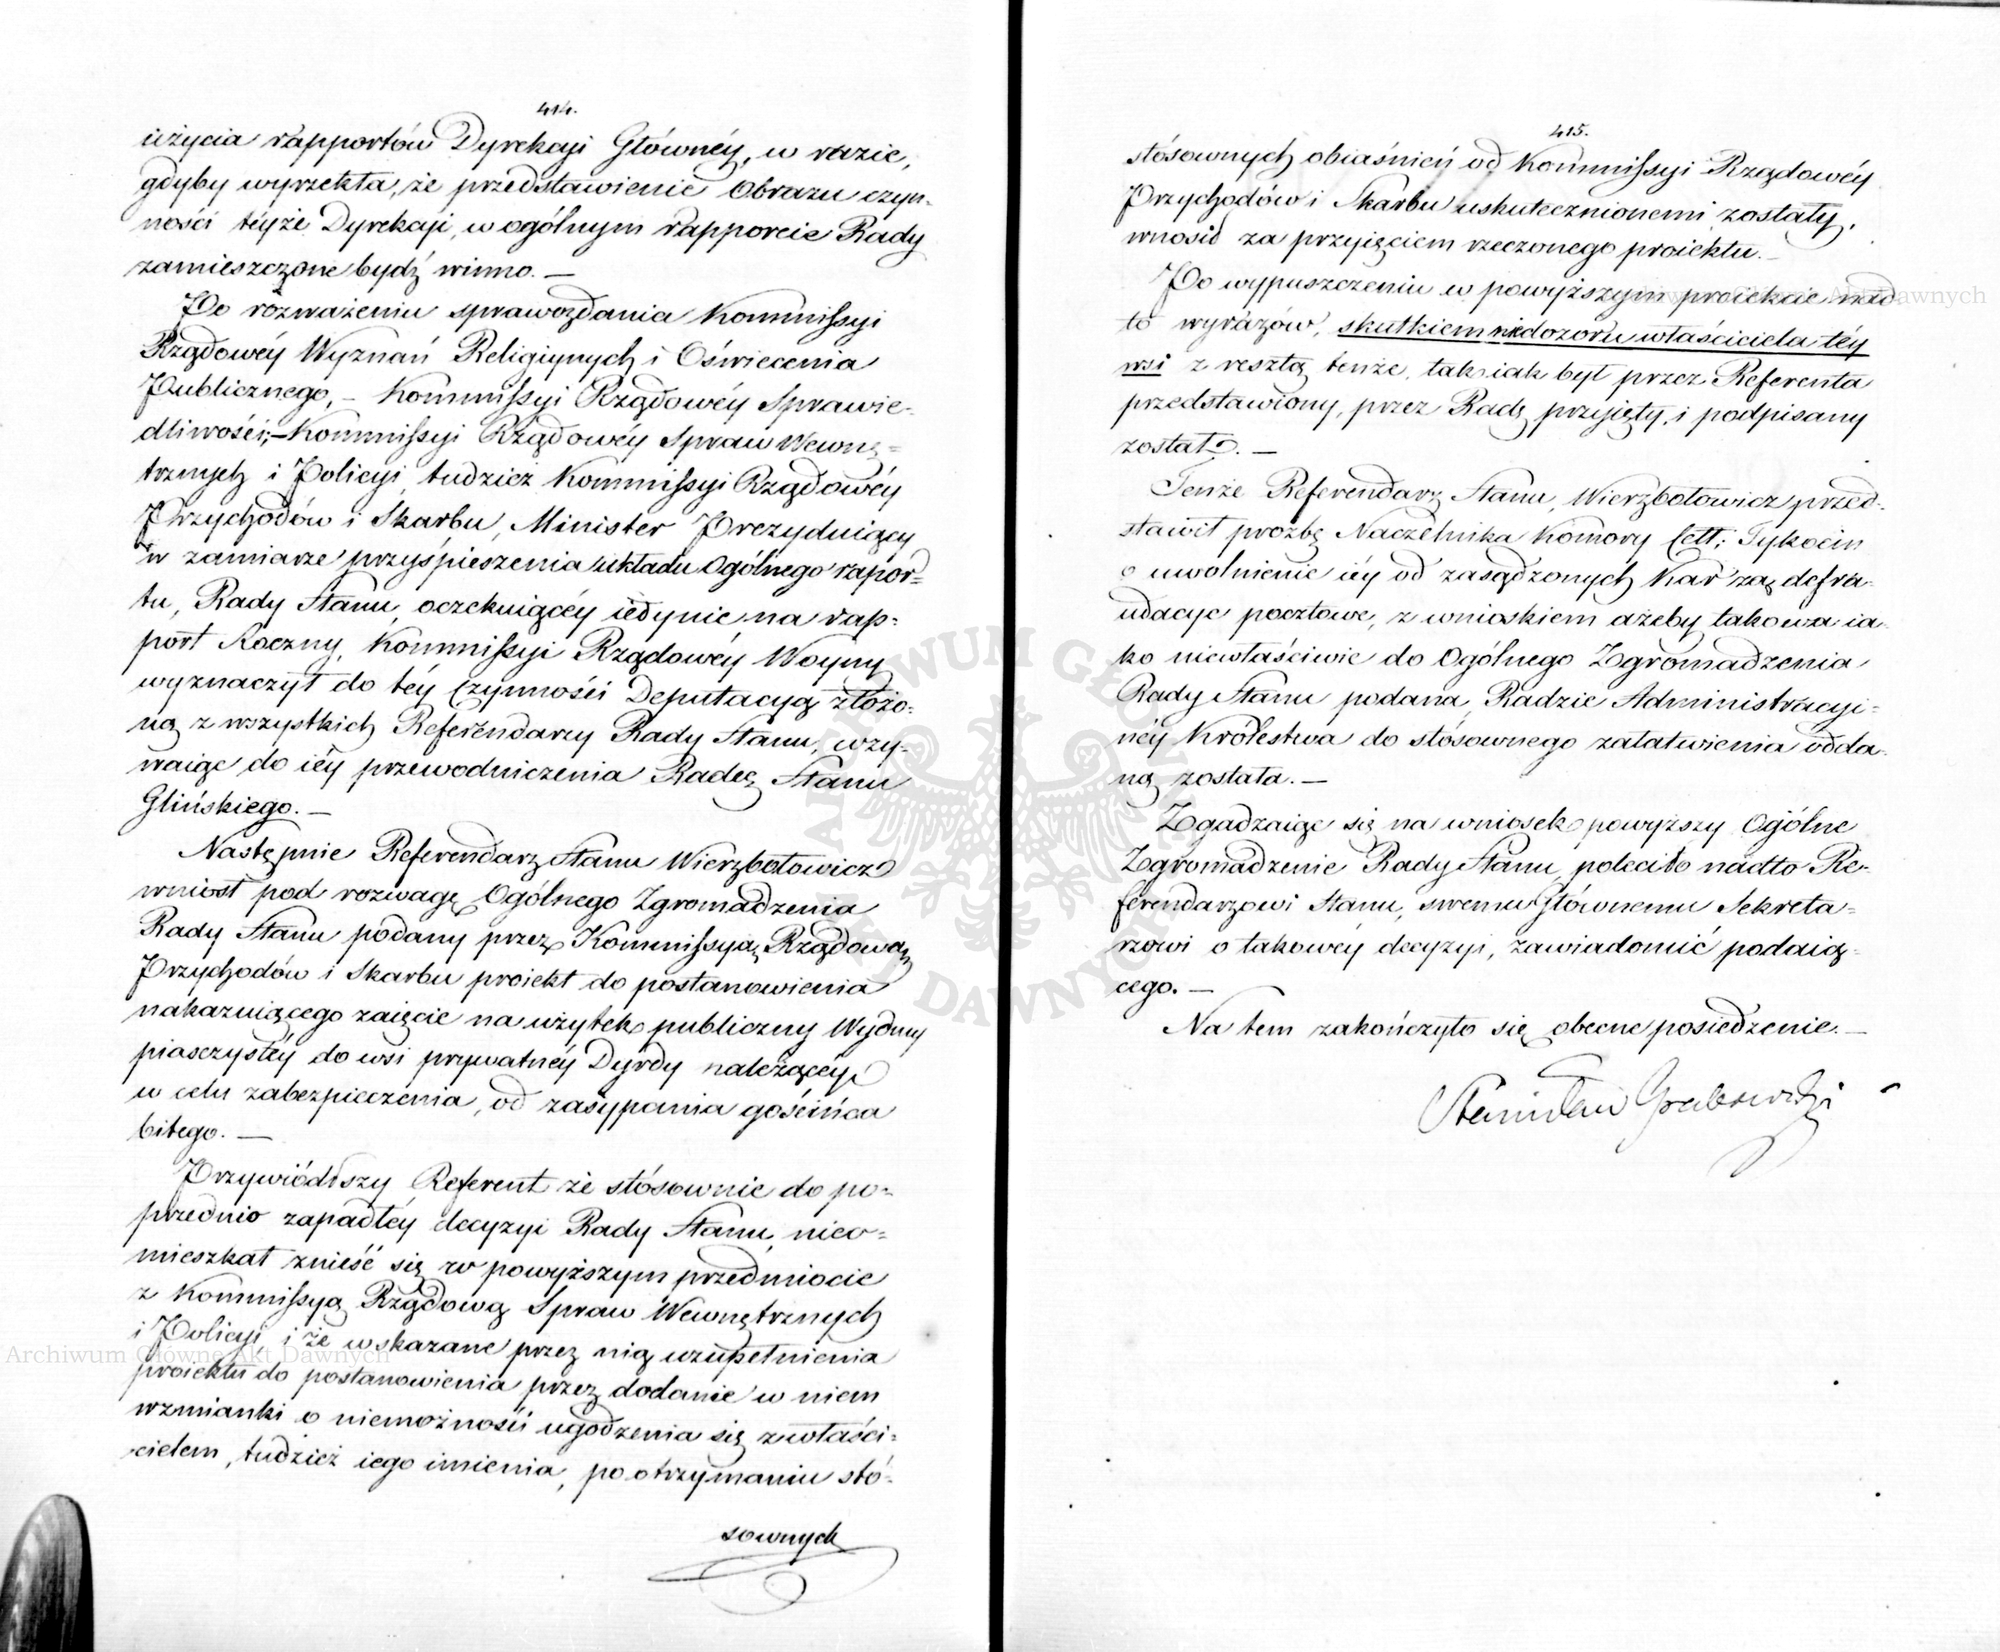 414.
użycia rapportów Dyrekcyi Głównéy, w razie,
gdyby wyrzekła, że przedstawienie Obrazu czyn-
ności téyże Dyrekcyi, w ogólnym rapporcie Rady
zamieszczone bydź winno. —
Po rozważeniu sprawozdania Kommissyi
Rządowéy Wyznań Religiynych i Oświecenia
Publicznego, – Kommissyi Rządowéy Sprawie-
dliwości; – Kommissyi Rządowéy Spraw Wewnę-
trznych i Policyi, tudzież Kommissyi Rządowéy
Przychodów i Skarbu, Minister Prezyduiący
w zamiarze przyśpieszenia układu Ogólnego rapor-
tu, Rady Stanu, oczekuiącéy iedynie na rap-
port Roczny, Kommissyi Rządowéy Woyny
wyznaczył do téy Czynności Deputacyą złożo-
ną z wszystkich Referendarzy Rady Stanu, wzy-
waiąc do iéy przewodniczenia Radcę Stanu
Glińskiego. —
Następnie Referendarz Stanu Wierzbołowicz
wniosł pod rozwagę Ogólnego Zgromadzenia
Rady Stanu podany przez Kommissyą Rządową
Przychodów i Skarbu proiekt do postanowienia
nakazuiącego zaięcie na użytek publiczny Wydmy
piasczystéy do wsi prywatnéy Dyrdy należącéy
w celu zabezpieczenia, od zasypania gościńca
bitego. —
Przywiódłszy Referent że stósownie do po-
przednio zapadłéy decyzyi Rady Stanu, nieo-
mieszkał znieść się w powyższym przedmiocie
z Kommissyą Rządową Spraw Wewnętrznych
i Policyi, i że wskazane przez nią uzupełnienia
proiektu do postanowienia przez dodanie w niem
wzmianki o niemożności ugodzenia się z właści-
cielem, tudzież iego imienia, po otrzymaniu stó-
sownych
415.
stósownych obiaśnień od Kommissyi Rządowéy
Przychodów i Skarbu uskutecznionemi zostały,
wnosił za przyięciem rzeczonego proiektu. —
Po wypuszczeniu w powyższym proiekcie nad
to wyrazów, skutkiem niedozoru właściciela téy
wsi z resztą tenże, tak iak był przez Referenta
przedstawiony, przez Radę przyięty, i podpisany
został. —
Tenże Referendarz Stanu, Wierzbołowicz przed-
stawił prozbę Naczelnika Komory Cell: Tykocin
o uwolnienie iéy od zasądzonych Kar za defra-
udacye pocztowe, z wnioskiem ażeby takowa ia-
ko niewłaściwie do Ogólnego Zgromadzenia
Rady Stanu podana, Radzie Administracyi-
néy Królestwa do stósownego załatwienia odda-
ną została. —
Zgadzaiąc się na wniosek powyższy Ogólne
Zgromadzenie Rady Stanu, poleciło nadto Re-
ferendarzowi Stanu, swemu Głównemu Sekreta-
rzowi o takowéy decyzyi, zawiadomić podaią-
cego. —
Na tem zakończyło się obecne posiedzenie. —
Stanisław Grabowski
Archiwum Główne Akt Dawnych
Archiwum Główne Akt Dawnych
ARCHIWUM GŁÓWNE AKT DAWNYCH